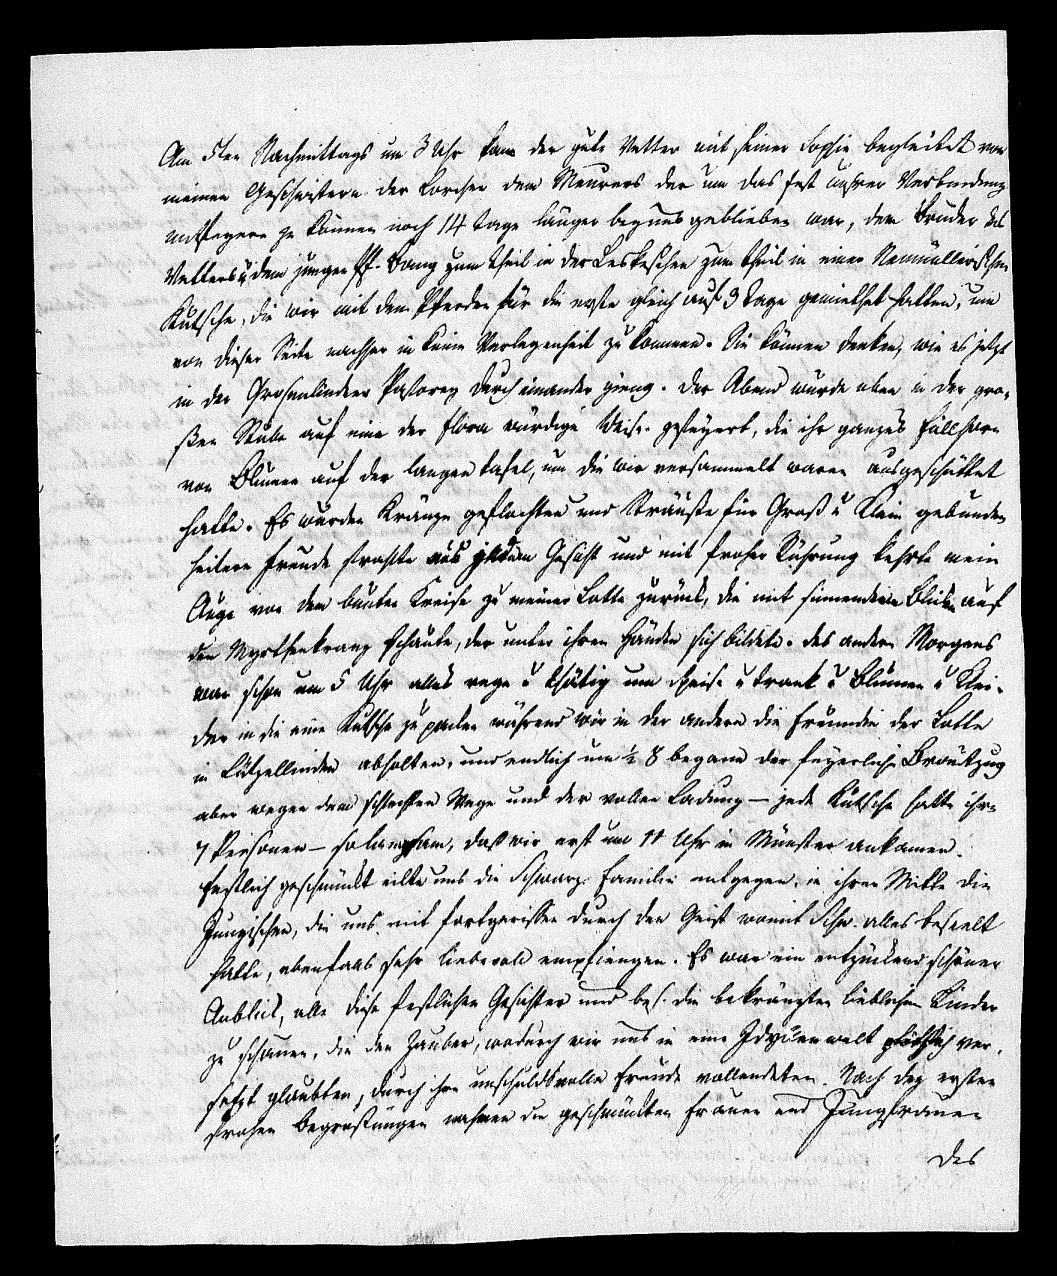 Am 5ten Nachmittags um 3 Uhr kam der gute Vetter mit seiner Sophie begleitet von
meinen Geschwistern der Lorchen dem Meurers der um das Fest unsrer Verbindung
mitfeyern zu können noch 14 Tage länger bey uns geblieben war, dem Bruder des
Vetters u dem jungen Pf. Bang zum Theil in der Leskeschen zum Theil in einer Neumüllerischen
Kutsche, die wir mit den Pferden für die erste gleich auf 3 Tage gemiethet hatten, um
von dieser Seite nachher in keine Verlegenheit zu kommen. Sie können denken, wie es jetzt
in der Grosenlinder Pastorey durch einander gieng. Der Abend wurde oben in der gro-
ßen Stube auf eine der Flora würdige Weise gefeyert, die ihr ganzes Füllhorn
von Blumen auf der langen Tafel, um die wir versammelt waren ausgeschüttet
hatte. Es wurden Kränze geflochten und Sträuße für Groß u Klein gebunden
heitere Freude strahlte aus jedem Gesicht und mit froher Rührung kehrte mein
Auge von dem bunten Kreise zu meiner Lotte zurück, die mit sinnendem Blick auf
den Myrthenkranz schaute, der unter ihren Händen sich bildete. Des andern Morgens
war schon um 5 Uhr alles rege u thätig um Speise u Trank u Blumen u Klei-
der in die eine Kutsche zu packen während wir in der andern die Freundin der Lotte
in Lützellinden abholten, und endlich um ½ 8 begann der feyerliche Brautzug
aber wegen dem schlechten Wege und der vollen Ladung – jede Kutsche hatte ihre
7 Personen – so langsam, daß wir erst um 11 Uhr in Münster ankamen.
Festlich geschmückt eilte uns die Schwarz. Familie entgegen, in ihrer Mitte die
Jungischen, die uns mit fortgerissen durch den Geist womit Schw. alles beseelt
hatte, ebenfalls sehr liebevoll empfiengen. Es war ein entzückend schöner
Anblick, alle diese festlichen Gesichter und bes. die bekränzten lieblichen Kinder
zu schauen, die den Zauber, wodurch wir uns in eine Idyllenwelt plötzlich ver-
setzt glaubten, durch ihre unschuldsvolle Freude vollendeten. Nach den ersten
frohen Begrüßungen nahmen die geschmückten Frauen und Jungfrauen
des